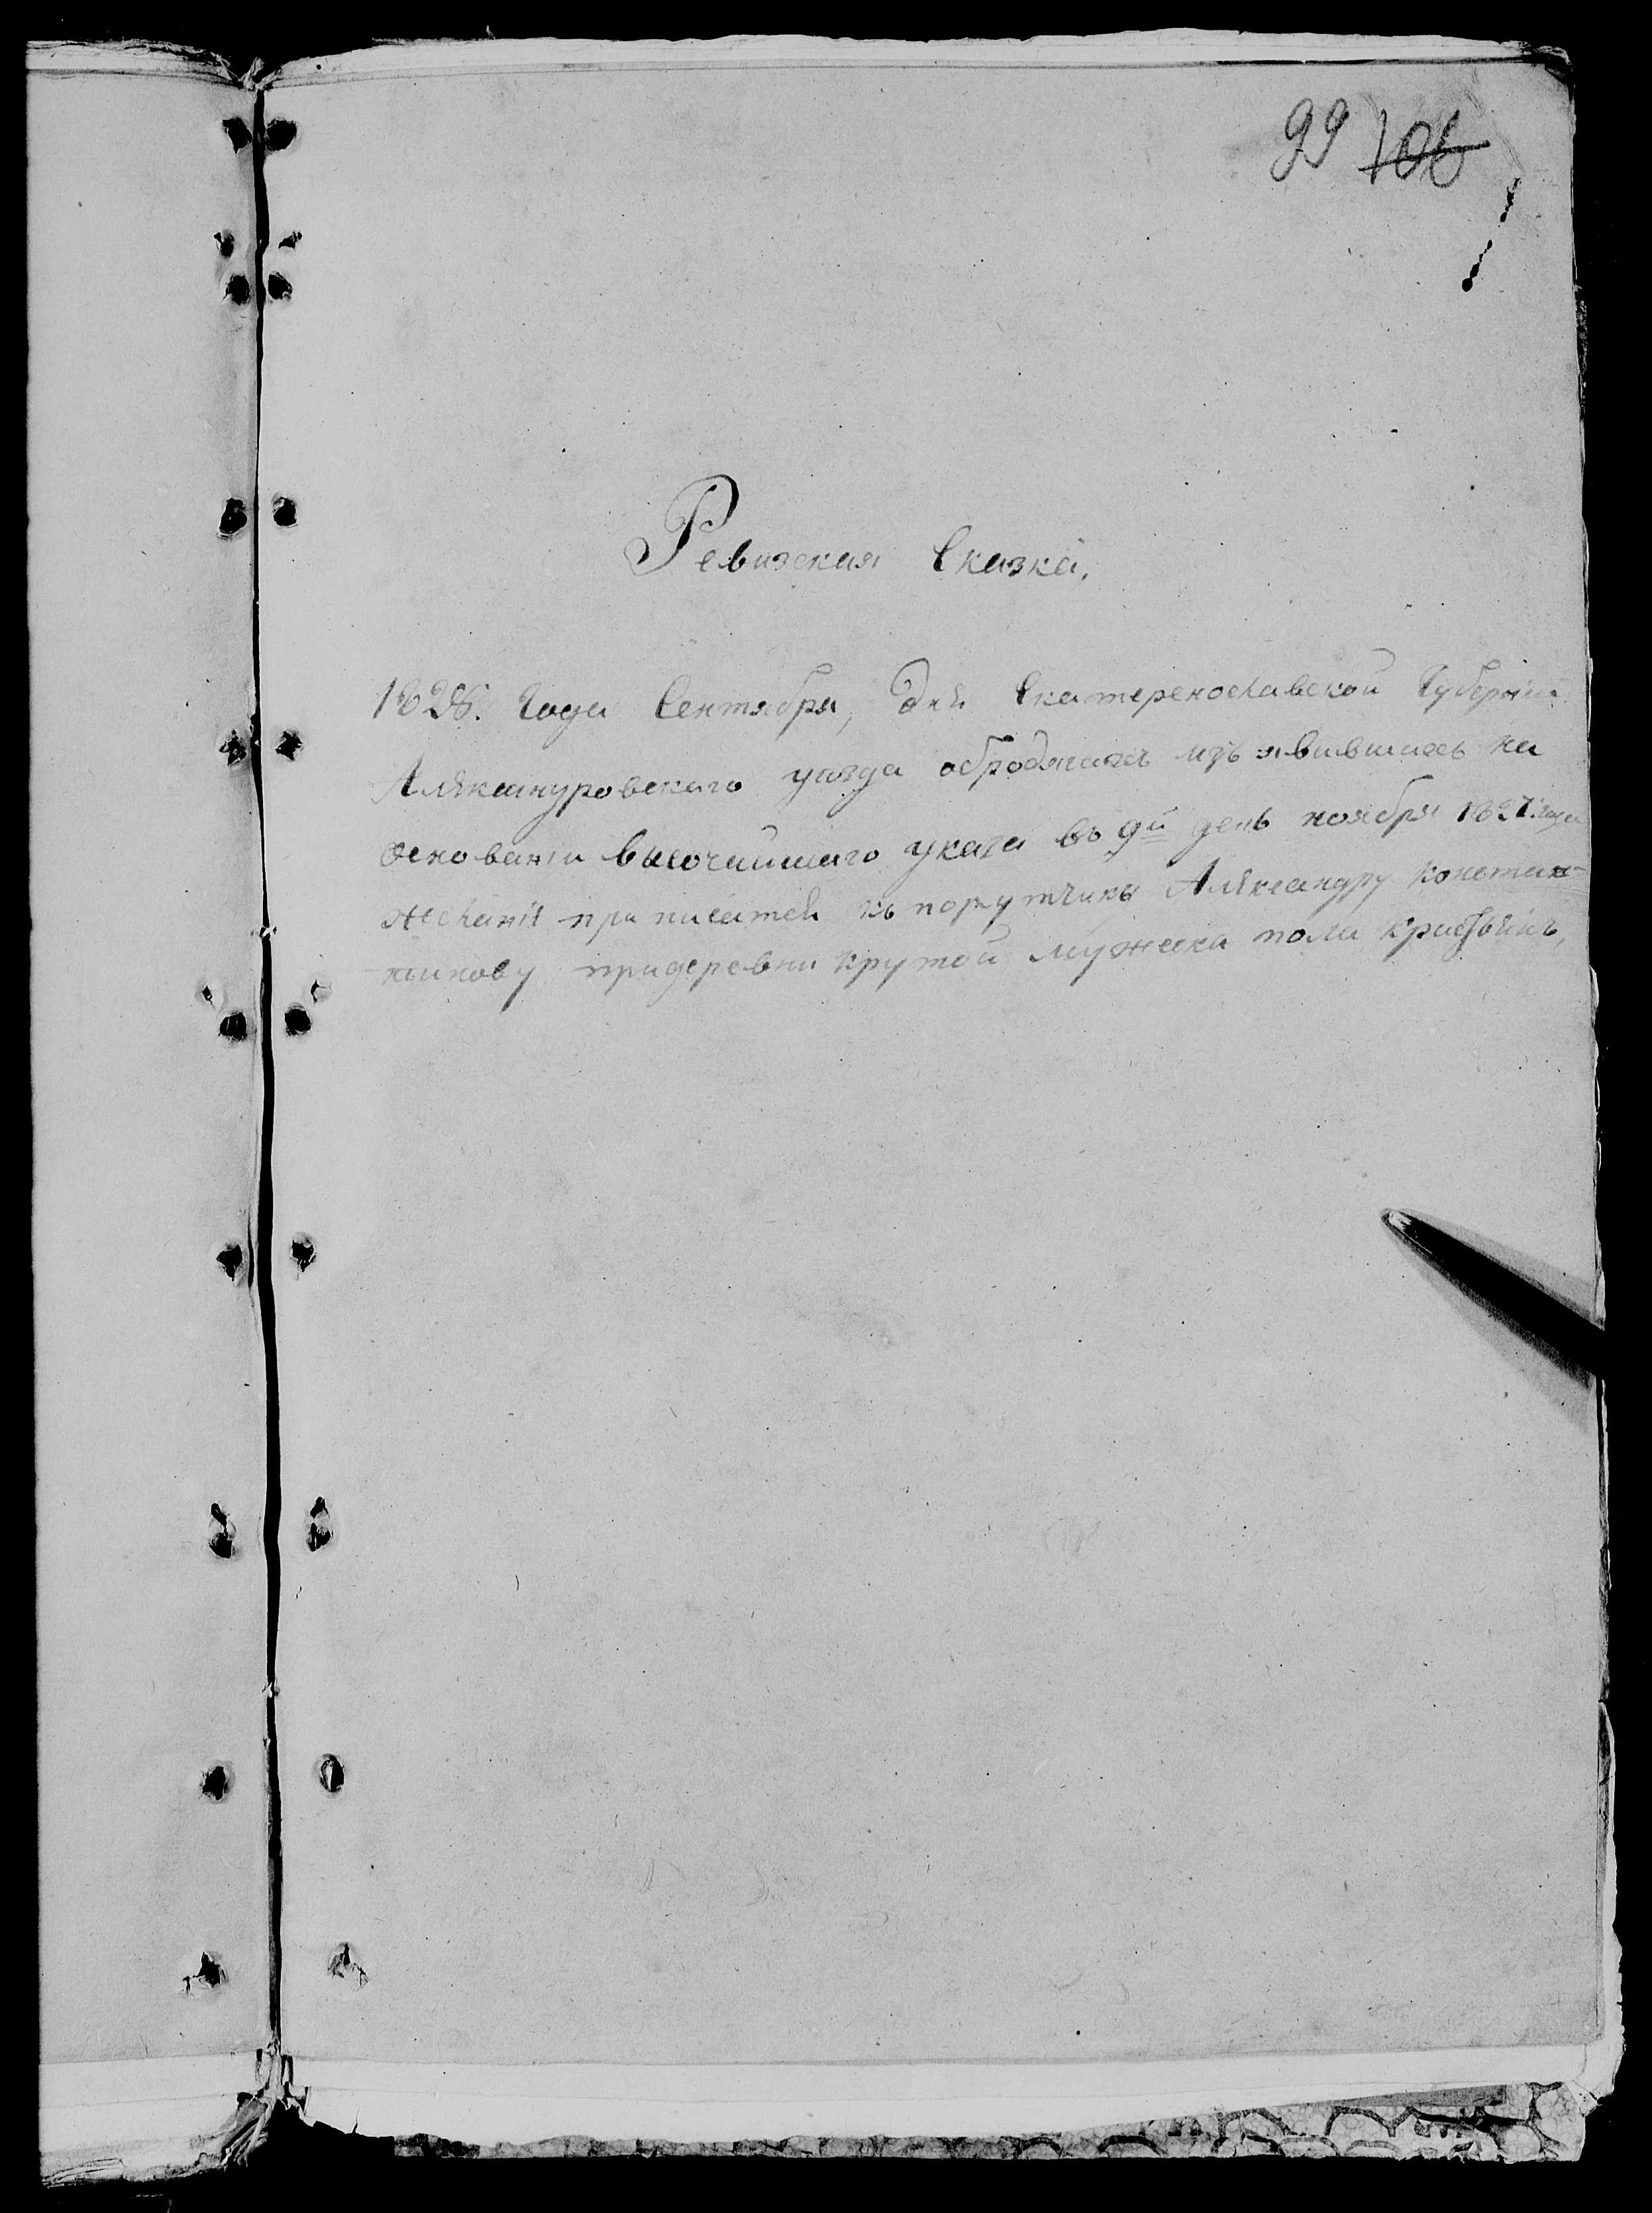 99 106
Ревизская Сказка.
1828. Года Сентября, Дня Екатеренославской Губернии
Аляксандровскаго уезда обродягахъ изъявившихъ на
основании высочайшаго указа въ 9й день ноября 1827. года
желаніе приписатся къ порутчику Аляксандру констан-
тинову придеревни крутой мужеска пола крист